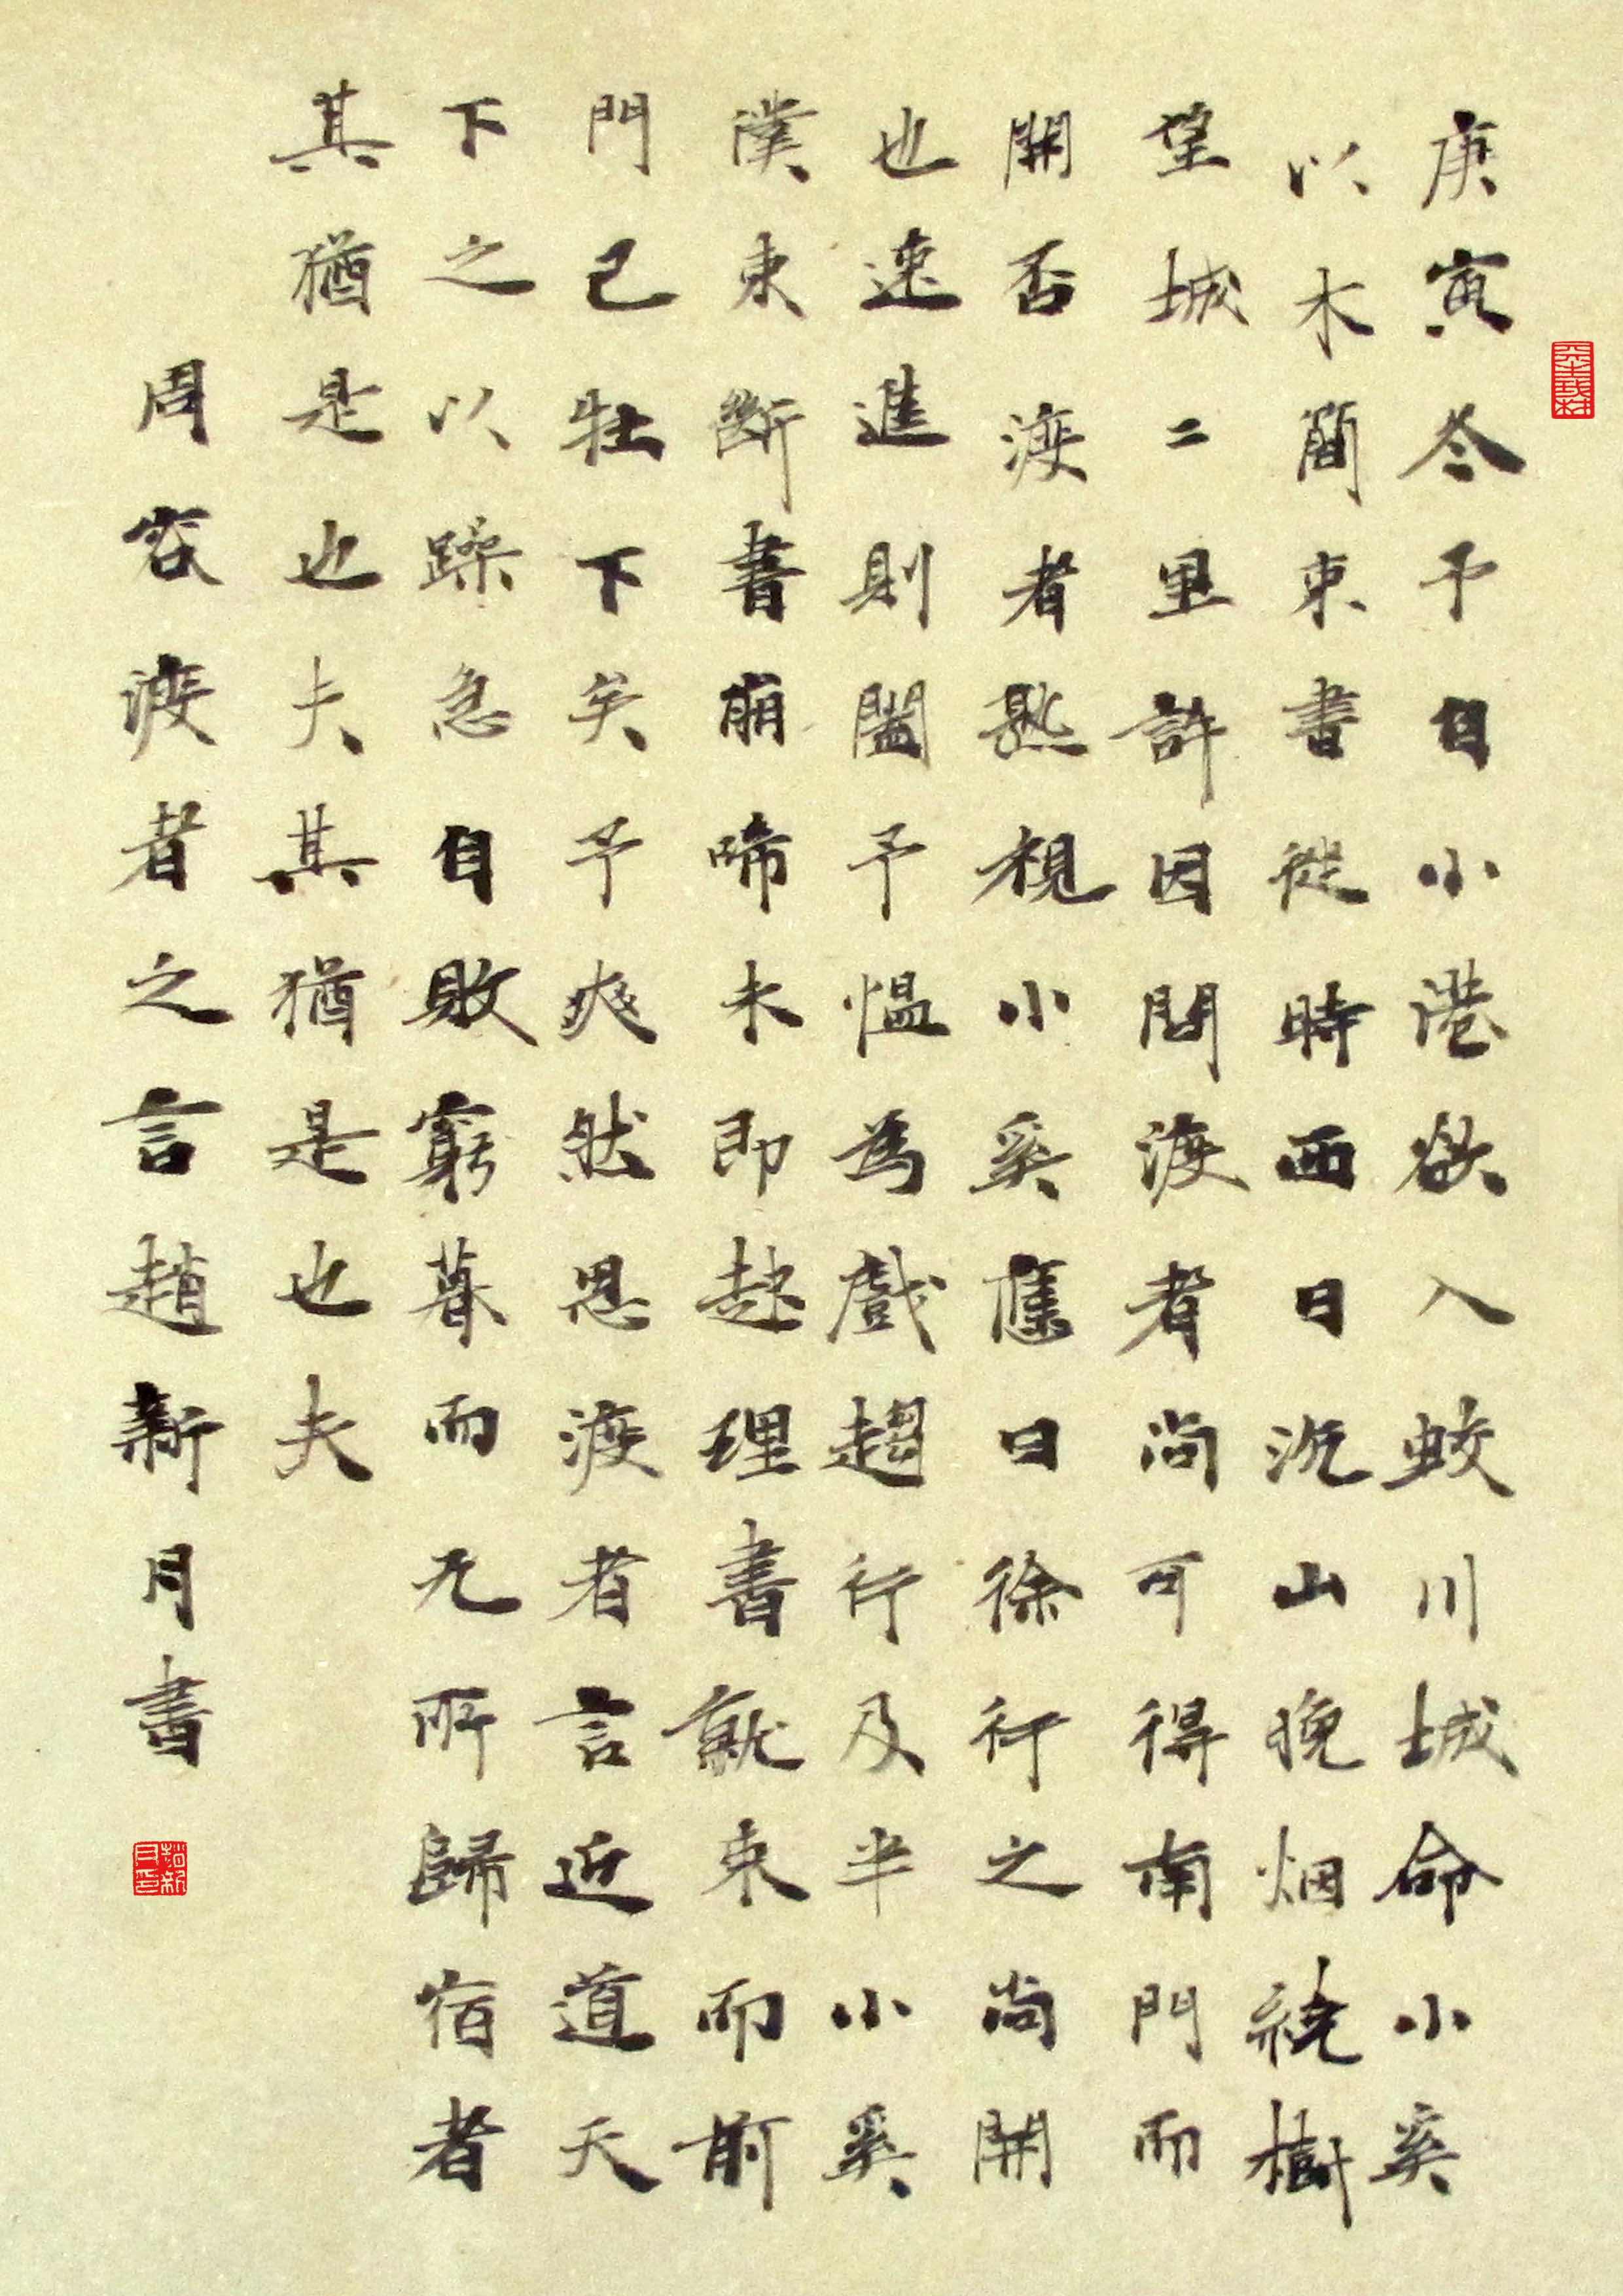 庚寅冬予自小港欲入蛟川城命小奚
以木簡束書從時西日沉山晚烟繞樹
望城二里許因問渡者尚可得南門而
開否渡者熟視小奚應曰徐行之尚開
也速進則闔予愠為戲趨行及半小奚
僕束斷書崩啼未即起理書就束而前
門已牡下矣予爽然思渡者言近道天
下之以躁急自敗窮暮而無所歸宿者
其猶是也夫其猶是也夫
周容渡者之言趙新月書